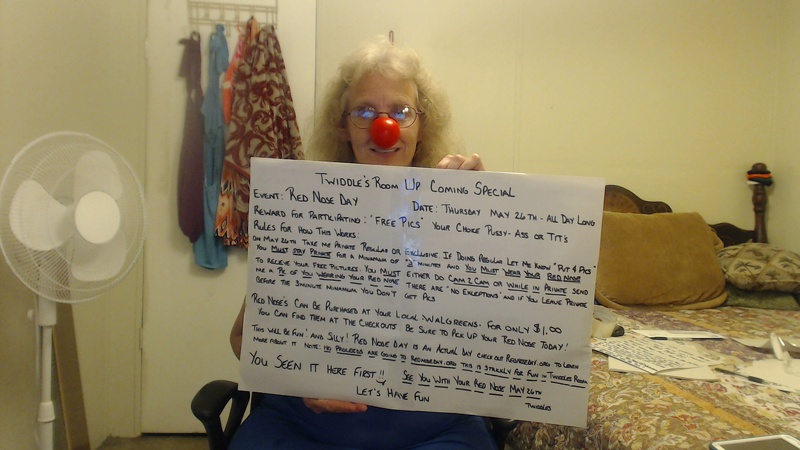 Twiddle's Room Up Coming Special
Event: Red Nose Day Date: Thursday May 26th - All Day Long
Reward for Participating: "Free Pics" Your Choice Pussy-Ass or Tit's
Rules for How This Works:
On May 26th Take Me Private Regular or Exclusive If Doing Regular Let Me Know "Put 4 Pics"
You Must Stay Private for a Minimum of "3" Minutes and You Must Wear Your Red Nose
to Recieve Your Free Pictures. You Must Either Do Cam 2 Cam or While in Private Send
Me a Pic of You Wearing Your Red Nose There Are "No Exceptions" and If You Leave Private
Before the 3 Minute Minimum You Don't Get Pics
Red Nose's Can Be Purchased at Your Local: Walgreens. For Only $1.00
You Can Find Them at the Checkouts Be Sure to Pick Up Your Red Nose Today!
This Will Be Fun! and Silly! Red Nose Day Is an Actual Day Check Out Rednoseday.org to Learn
More About It Note: No Proceeds Are Going to Rednoseday.org This Is Strickly for Fun in Twiddles Room
You Seen It Here First!! See You With Your Red Nose May 26th
Let's Have Fun Twiddles